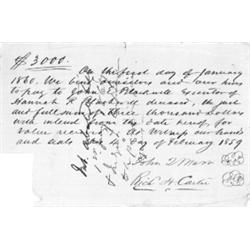 $3000.
On the first day of January
1860. We bind ourselves and our heirs
to pay to John E. Blackwell Executor of
Hannah R. Blackwell deceased, the just
and full sum of three thousand dollars
with interest from the date hereof, for
value received. As Witness our hands
and seals this day of February 1859
John D
Rich H. Carter